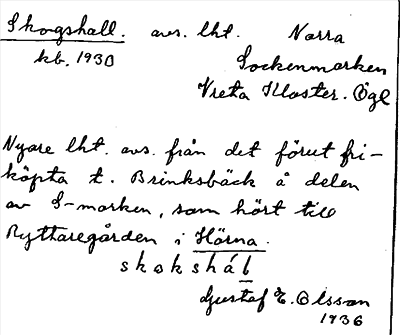 Skogshall. avs. lht. Norra
kb. 1930 Sockenmarken
Vreta Kloster. Ögl
Nyare lht. avs. från det förut fri-
köpta t. Brinksbäck å delen
av S-marken, som hört till
Ryttaregården i Hörna.
skokshál
Gustaf E. Olsson
1936